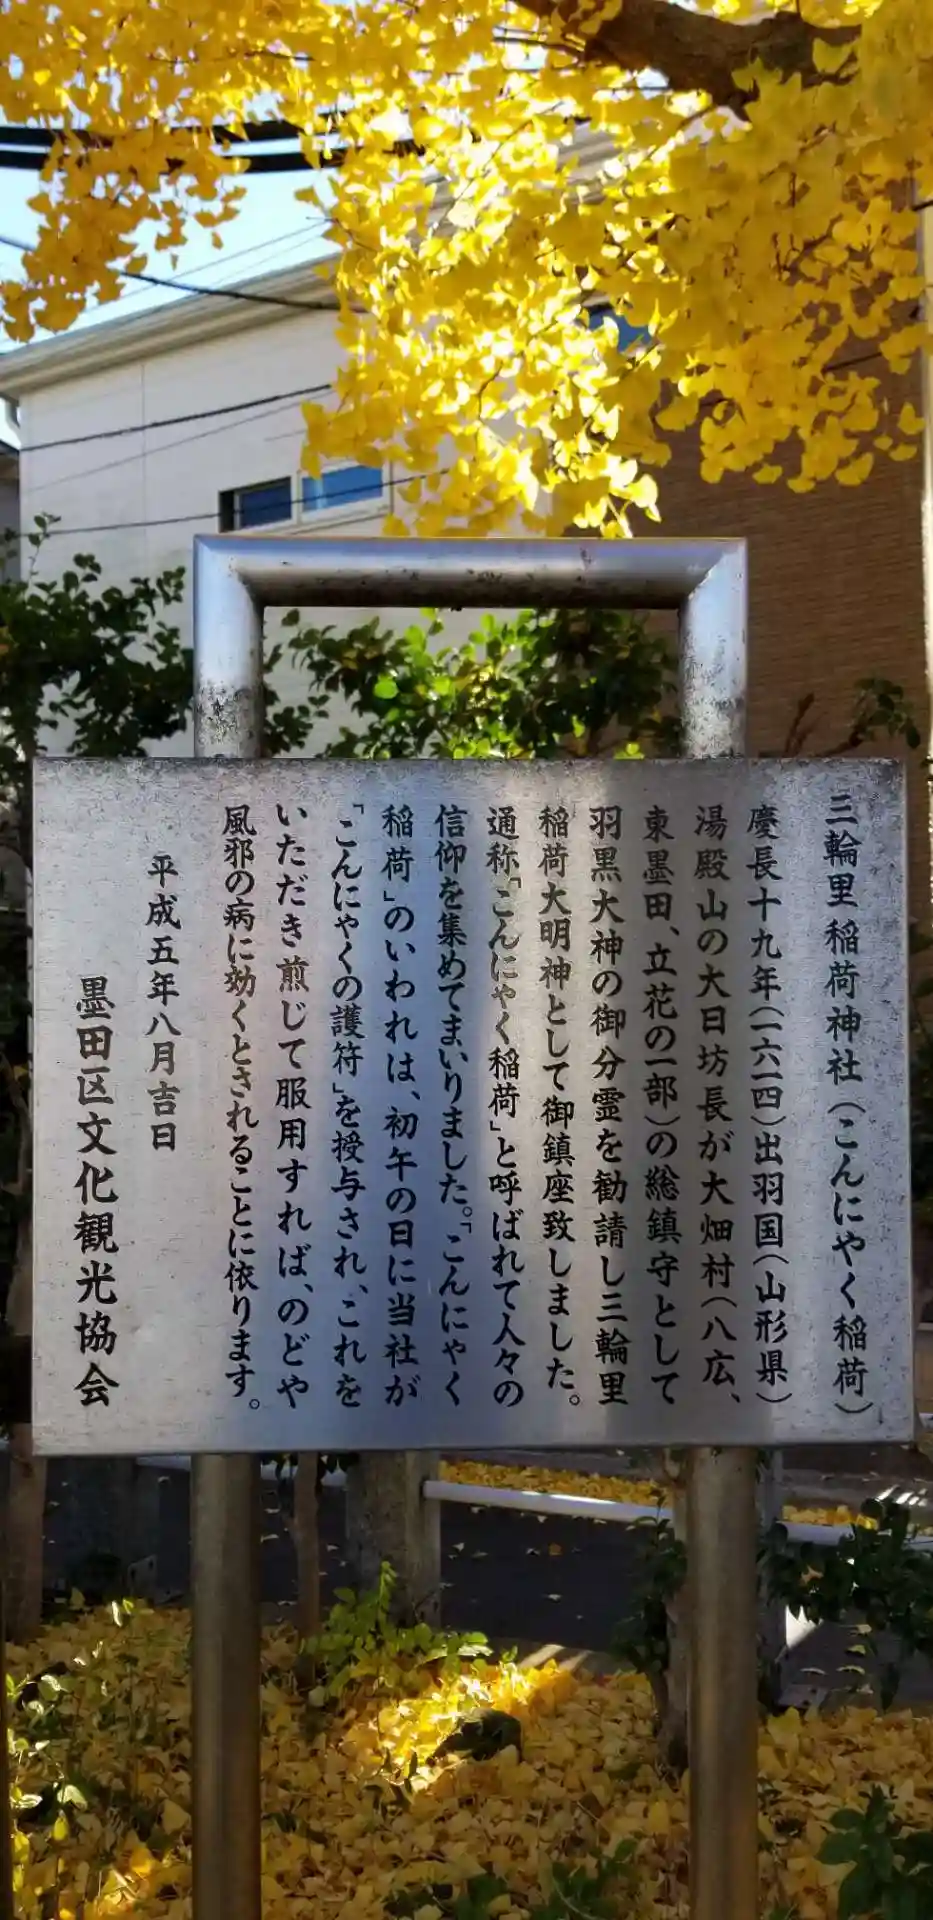 三輪里稲荷神社（こんにやく稲荷）
慶長十九年（一六一四）出羽国（山形県）
湯殿山の大日坊長が大畑村（八広、
東墨田、立花の一部）の総鎮守として
羽黒大神の御分霊を勧請し三輪里
稲荷大明神として御鎮座致しました。
通称「こんにゃく稲荷」と呼ばれて人々の
信仰を集めてまいりました。「こんにゃく
稲荷」のいわれは、初午の日に当社が
「こんにゃくの護符」を授与され、これを
いただき煎じて服用すれば、のどや
風邪の病に効くとされることに依ります。
平成五年八月吉日
墨田区文化観光協会